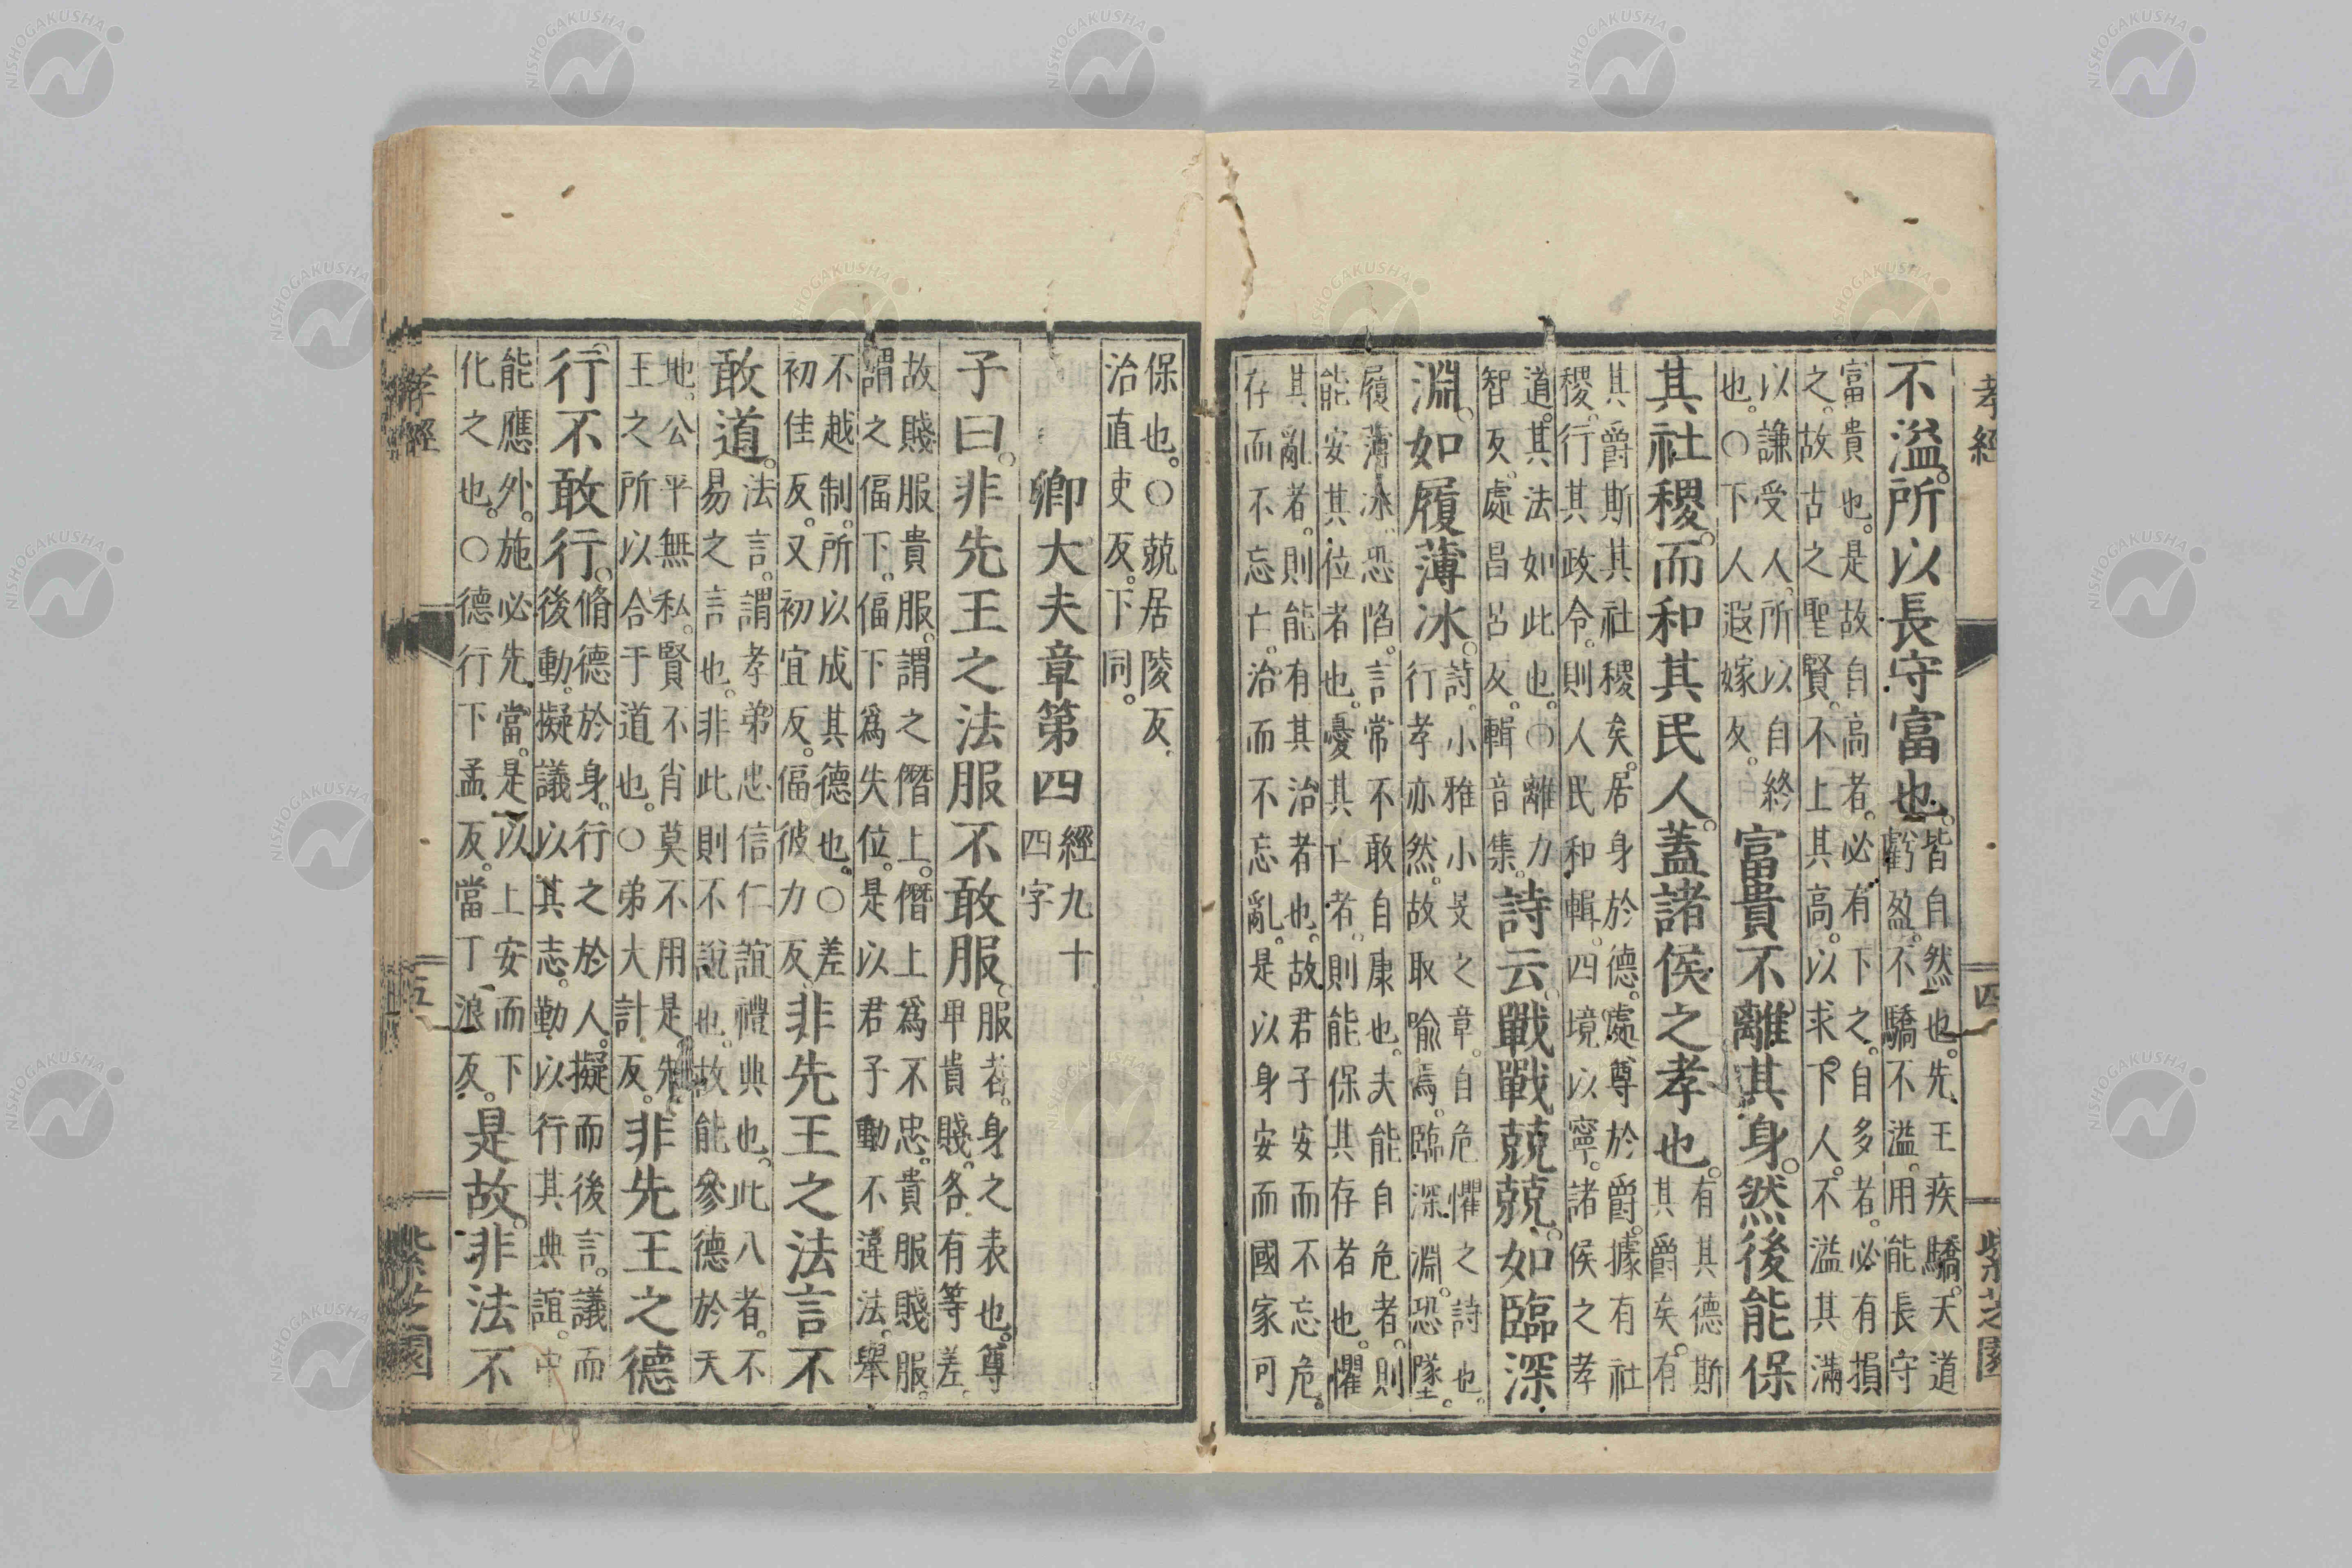 孝經 四 紫芝園
不溢。所以長守富也。皆自然也。先王疾驕。天道
虧盈。不驕不溢。用能長守
富貴也。是故自高者。必有下之。自多者。必有損
之。故古之聖賢。不上其高。以求下人。不溢其滿
以謙受人。所以自終
也。○下人遐嫁反。富貴不離其身。然後能保
其社稷。而和其民人。蓋諸侯之孝也。有其德斯
其爵矣。有
其爵斯其社稷矣。居身於德。處尊於爵。據有社
稷。行其政令。則人民和輯。四境以寧。諸侯之孝
道。其法如此也。○離力
智反。處昌呂反。輯音集。詩云。戰戰兢兢。如臨深
淵。如履薄冰。詩小雅小旻之章。自危懼之詩也。
行孝亦然。故取喻焉。臨深淵。恐墜。
履薄冰。恐陷。言常不敢自康也。夫能自危者。則
能安其位者也。憂其亡者。則能保其存者也。懼
其亂者。則能有其治者也。故君子安而不忘危。
存而不忘亡。治而不忘亂。是以身安而國家可
保也。○兢居陵反。
治直吏反。下同。
卿大夫章第四 經九十
四字
子曰。非先王之法服不敢服。服者。身之表也。尊
卑貴賤。各有等差。
故賤服貴服。謂之僭上。僭上爲不忠。貴服賤服。
謂之偪下。偪下爲失位。是以君子動不違法。舉
不越制。所以成其德也。○差
初佳反。又初宜反。偪彼力反。非先王之法言不
敢道。法言。謂孝弟忠信仁誼禮典也。此八者。不
易之言也。非此則不說也。故能參德於天
地。公平無私。賢不肖莫不用是先
王之所以合于道也。○弟大計反。非先王之德
行不敢行。脩德於身。行之於人。擬而後言。議而
後動。擬議以其志。動以行其典誼。中
能應外。施必先當。是以上安而下
化之也。○德行下孟反。當丁浪反。是故。非法不
孝經 五 紫芝園
NISHOGAKUSHA